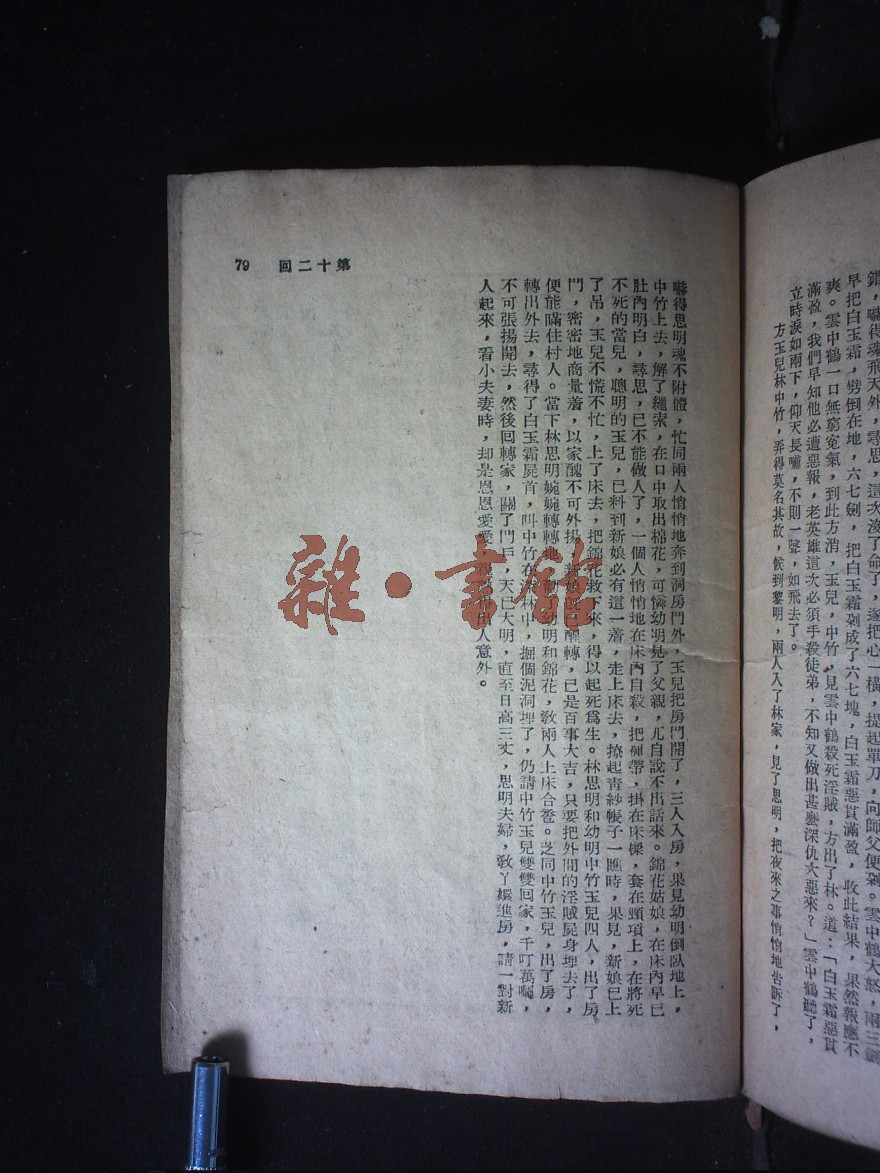 錯，嚇得魂飛天外，尋思，這次沒了命了，遂把心一橫，提起單刀，向師父便剁。雲中鶴大怒，兩三劍
早把白玉霜，劈倒在地，六七劍，把白玉霜剁成了六七塊，白玉霜惡貫滿盈，收此結果，果然報應不
爽。雲中鶴一口無窮寃氣，到此方消，玉兒，中竹，見雲中鶴殺死淫賊，方出了林。道：「白玉霜惡貫
滿盈，我們早知他必遭惡報，老英雄這次必須手殺徒弟，不知又做出甚麼深仇大惡來？」雲中鶴聽了，
立時淚如雨下，仰天長嘯，不則一聲，如飛去了。
方玉兒林中竹，弄得莫名其故，候到黎明，兩人入了林家，見了思明，把夜來之事悄悄地告訴了，
嚇得思明魂不附體，忙同兩人悄悄地奔到洞房門外，玉兒把房門開了，三人入房，果見幼明倒臥地上，
中竹上去，解了繩索，在口中取出棉花，可憐幼明見了父親，尤自說不出話來。錦花姑娘，在床內早已
肚內明白，尋思，已不能做人了，一個人悄悄地在床內自殺，把褲帶，掛在床樑，套在頸項上，在將死
不死的當兒，聰明的玉兒，已料到新娘必有這一着，走上床去，撩起青紗帳子一瞧時，果見，新娘已上
了吊，玉兒不慌不忙，上了床去，把錦花救下來，得以起死爲生。林思明和幼明中竹玉兒四人，出了房
門，密密地商量着，以家醜不可外揚，新娘旣已醒轉，已是百事大吉，只要把外間的淫賊屍身埋去了，
便能瞞住村人。當下林思明婉婉轉轉地，勸了幼明和錦花，敎兩人上床合卺。芝同中竹玉兒，出了房，
轉出外去，尋得了白玉霜屍首，叫中竹在深林中，掘個泥洞埋了，仍請中竹玉兒雙雙回家，千叮萬囑，
不可張揚開去，然後回轉家，關了門戶，天已大明，直至日高三丈，思明夫婦，敎丫嬛進房，請一對新
人起來，看小夫妻時，却是恩恩愛愛，親出人意外。
第十二回 79
雜·書館